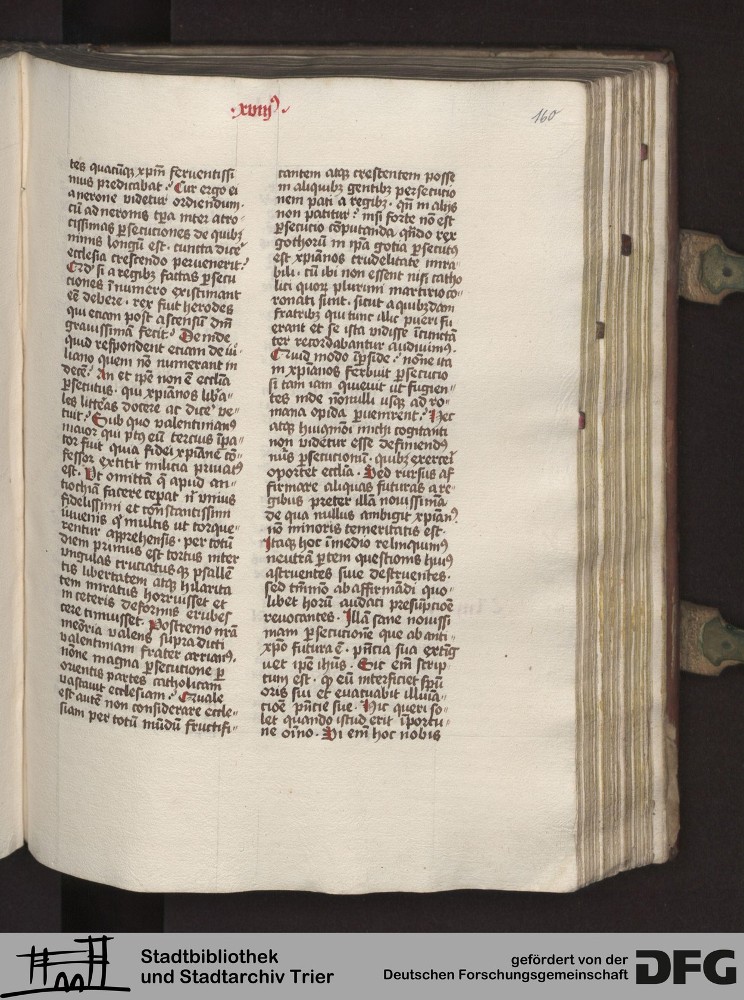 ·xviij⁹·
160
tes quacūq; xpm̄ feruentissi
mus predicabat? Cur ergo ei
a nerone videtur ordiendum·
cū ad neronis tp̄a inter atro-
cissimas p̄secutiones de quibꝫ
nimis longū est · cuncta dice
ecclesia crescendo peruenerit?
Qd' si a regibꝫ factas p̄secu
ciones ī numero existimant
eē debere · rex fuit herodes
qui etiam post ascensū dn̄i
grauissimā fecit? Deinde
quid respondent etiam de iu-
liano quem nō numerant in
decē? An et ip̄e non ē ecclīa
p̄secutus · qui xpianos lib'a-
les litt'as docere ac dice' ve-
tuit? Sub quo valentinian⁹
maior qui p⁹ eū tercius īpa-
tor fuit quia fidei xpiane cō-
fessor extitit milicia priuat⁹
est · Vt omittā q̄ apud an-
tiochiā facere cepat n̄ vnius
fidelissimi et constantissimi
iuuenis q̄ multis ut torque-
rentur apprehensis · per totū
diem primus est tortus inter
vngulas cruciatusq; psallē
tis libertatem atq; hilarita
tem miratus horruisset et
in ceteris deformis erubes
cere timuisset · Postremo nr̄a
meōria valens supra dicti
valentiniani frater arrian⁹·
nōne magna p̄secutione p
orientis partes catholicam
vastauit ecclesiam? Quale
est autē non considerare eccle-
siam per totū mūdū fructifi-
cantem atq; crescentem posse
in aliquibꝫ gentibꝫ persecutio
nem pati a regibꝫ · qn̄ in alijs
non patitur? nisi forte nō est
p̄secucio cōputanda qn̄do rex
gothorū in ip̄a gotia p̄secut⁹
est xpianos crudelitate mira
bili · cū ibi non essent nisi catho
lici quorꝫ plurimi martirio co-
ronati sunt · sicut a quibꝫdam
fratribꝫ qui tunc illic pueri fu
erant et se ista vidisse īcūctā
ter recordabantur audiuim⁹·
Quid modo ī pside? nōne ita
in xpianos ferbuit p̄secutio
si tam iam quieuit ut fugien-
tes inde nōnulli usq; ad ro-
mana opida p̄uenirent? Hec
atq; huiꝰmōi michi cogitanti
non videtur esse definiend⁹
nūs p̄secutionū · quibꝫ exerceri
oportet ecclīa · Sed rursus af
firmare aliquas futuras a re-
gibus preter illā nouissimā
de qua nullus ambigit xpian⁹·
nō minoris temeritatis est·
Itaq; hoc ī medio relinquim⁹
neutrā p̄tem questionis hui⁹
astruentes siue destruentes·
sed tm̄mō ab affirmādi quo-
libet horū audaci presūptiōe
reuocantes · Illā sane nouissi
mam p̄secutione que ab anti-
xp̄o futura ē · pn̄tia sua extīg
uet ip̄e ihūs · Sic em̄ scrip
tum est · q eū interficiet sp̄ū
oris sui et euacuabit illuīa-
cioē pn̄tie sue · Hic queri so-
let quando istud erit īportu-
ne oīno · Si em̄ hoc nobis
Stadtbibliothek
und Stadtarchiv Trier
gefördert von der
Deutschen Forschungsgemeinschaft
DFG